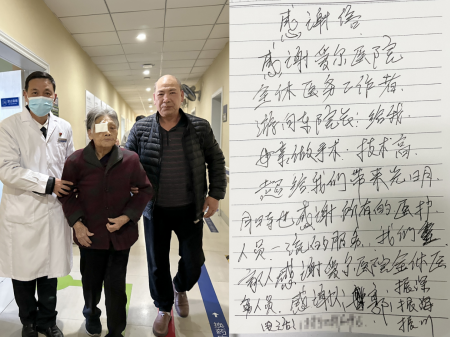 感谢信
感谢爱尔医院
全体医务工作者
游向东院长：给我
母亲做手术．技术高
超给我们带来光明
同时也感谢所有的医护
人员一流的服务．我们全
家人感谢爱尔医院全体医
务人员．感谢人 郭 振
振海
电话：振川